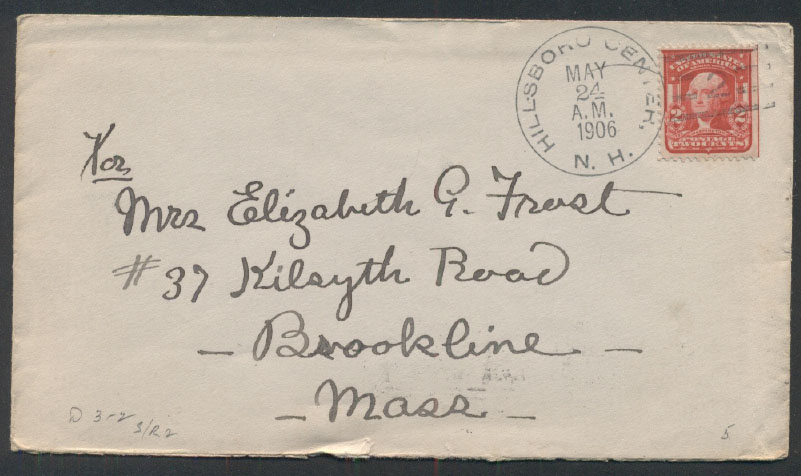 HILLSBORO CENTER,
MAY
24
A.M.
1906
N. H.
OF AMERICA
2 2
POSTAGE
TWO CENTS
For
Mrs Elizabeth G. Frost
#37 Kilsyth Road
– Brookline –
– Mass –
D 3-2
S/R 2
5